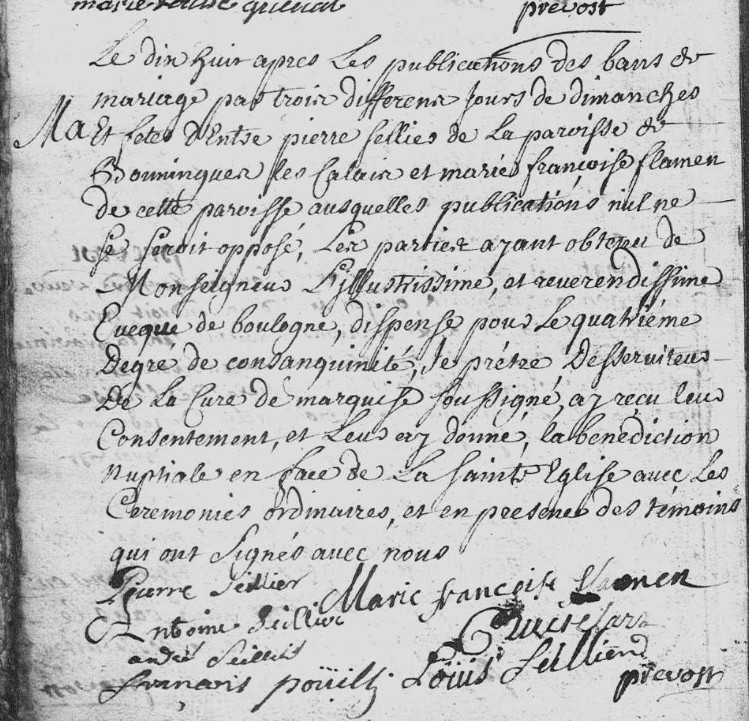 prevost
Le dix huit apres Les publications des bans de
mariage par trois differens Jours de dimanches
Ma Et fetes d'Entre pierre sellier de La paroisse de
Bonningues les Calais et marie françoise flamen
de cette paroisse ausquelles publications nul ne
se seroit opposé, Les parties ayant obtenu de
Monseigneur L'jllustrissime, et reverendissime
Eveque de boulogne, dispense pour Le quatriéme
Degre de consanguinité, Je prétre Desserviteur
De La Cure de marquise soussigné, ay reçu leur
Consentement, et Leur ay donné, la benédiction
nuptiale en face de La sainte Eglise avec Les
Ceremonies ordinaires, et en presence des témoins
qui ont signés avec nous
Pierre Seillier Marie françoise flamen
Antoine Seillier
andre Seillier Louis Seillier
françois poüilly prevost